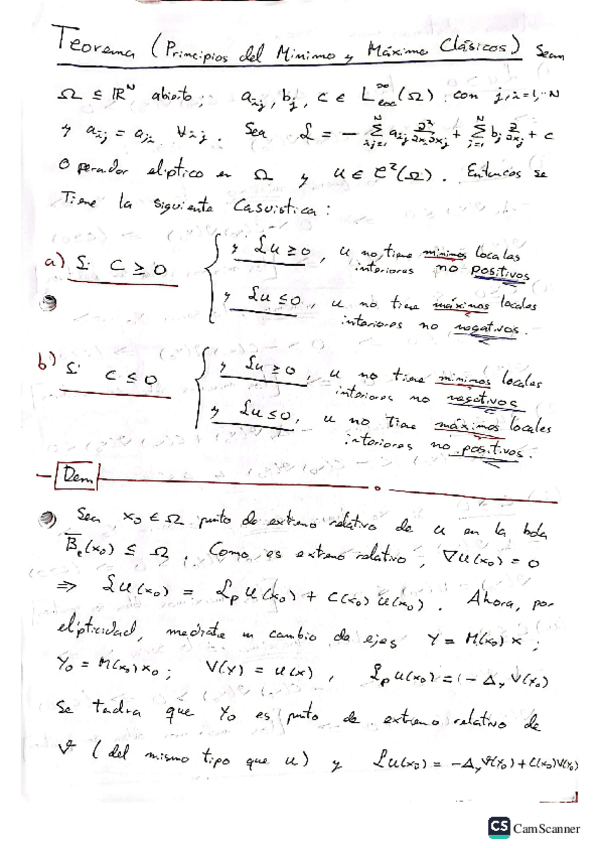 Teorema (Principios del Mínimo y Máximo Clásicos) Sean
Ω ⊆ ℝᴺ abierto; aᵢⱼ, bⱼ, c ∈ L^∞_loc(Ω) con j,i=1,..N
y aᵢⱼ = aⱼᵢ ∀i,j. Sea ℒ = - Σ_{i,j=1}^N aᵢⱼ ∂²/∂xᵢ∂xⱼ + Σ_{j=1}^N bⱼ ∂/∂xⱼ + c
Operador elíptico en Ω y u ∈ C²(Ω). Entonces se
Tiene la siguiente Casuística:
a) Si C ≥ 0 { y ℒu ≥ 0, u no tiene mínimos locales
interiores no positivos
y ℒu ≤ 0, u no tiene máximos locales
interiores no negativos.
b) Si C ≤ 0 { y ℒu ≥ 0, u no tiene mínimos locales
interiores no negativos
y ℒu ≤ 0, u no tiene máximos locales
interiores no positivos.
Dem
Sea x₀ ∈ Ω punto de extremo relativo de u en la bola
B̄_ε(x₀) ⊆ Ω. Como es extremo relativo, ∇u(x₀) = 0
⇒ ℒu(x₀) = ℒ_P u(x₀) + C(x₀) u(x₀). Ahora, por
elipticidad, mediante un cambio de ejes Y = M(x₀) x ;
Y₀ = M(x₀) x₀ ; V(Y) = u(x) , ℒ_P u(x₀) = (- Δ_y V(Y₀)
Se tendrá que Y₀ es punto de extremo relativo de
V (del mismo tipo que u) y ℒu(x₀) = -Δ_y V(Y₀) + C(x₀)V(Y₀)
CS CamScanner